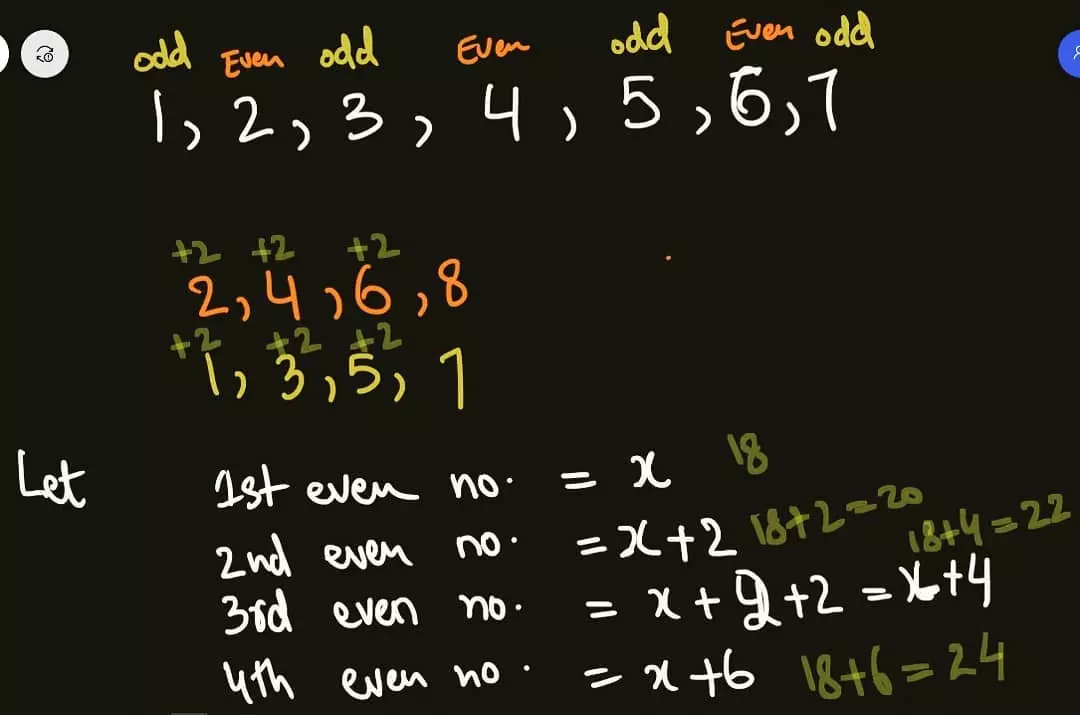 odd Even odd Even odd Even odd
1, 2, 3, 4, 5, 6, 7
+2 +2 +2
2, 4, 6, 8
+2 +2 +2
1, 3, 5, 7
Let 1st even no. = x 18
2nd even no. = x+2 18+2=20
3rd even no. = x+2+2 = x+4 18+4=22
4th even no. = x+6 18+6=24